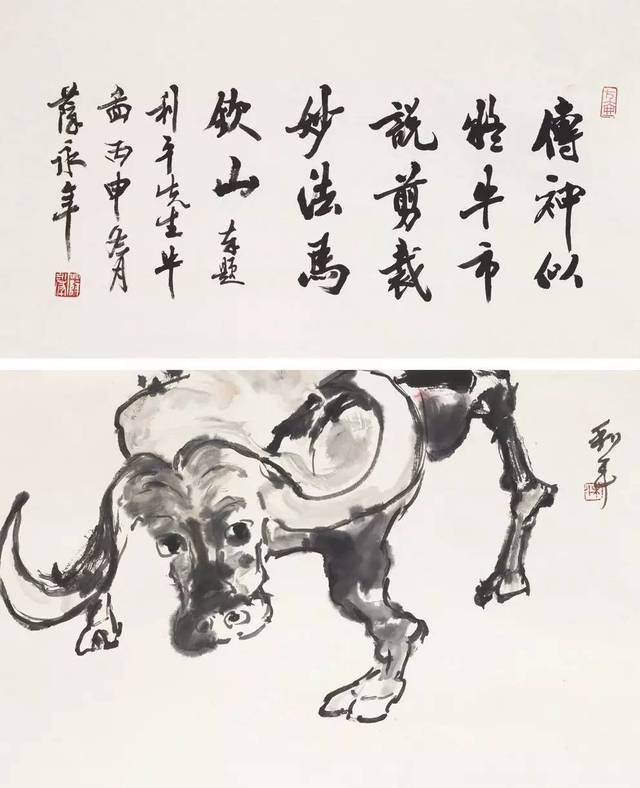 傳神似
牛市
說剪裁
妙法馬
欽山 奉題
利平先生牛
畫丙申冬月
薛永年
利平